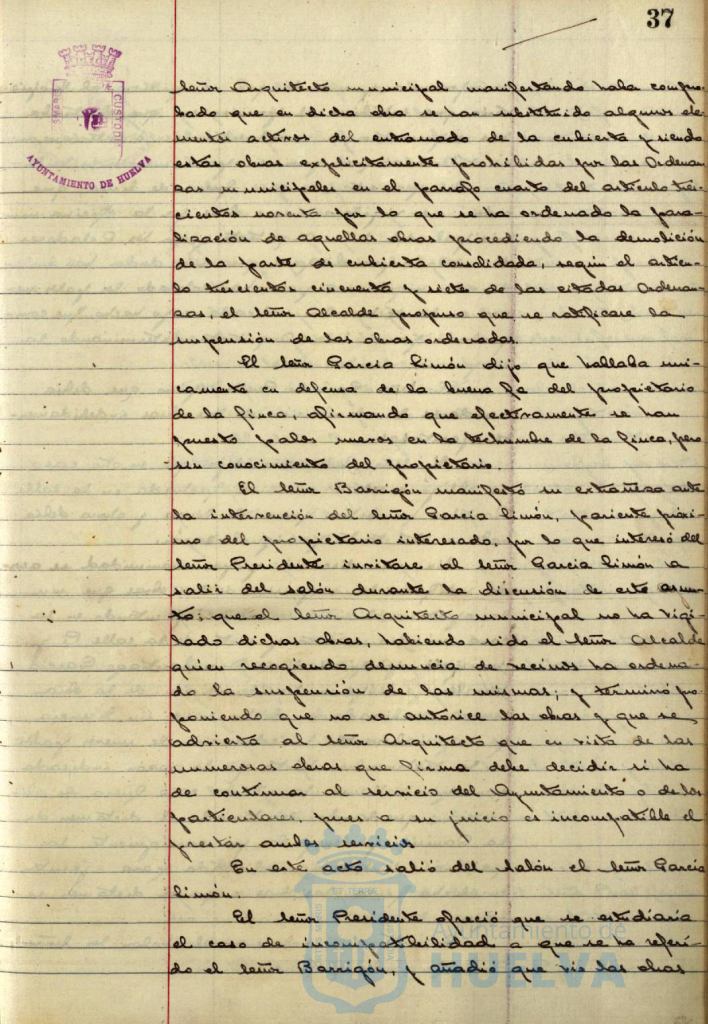 37
CUSTODI
AYUNTAMIENTO DE HUELVA
señor Arquitecto municipal manifestando haber compro-
bado que en dicha obra se han substituido algunos ele-
mentos activos del entramado de la cubierta y siendo
estas obras explícitamente prohibidas por las Ordenan-
zas municipales en el párrafo cuarto del artículo tres-
cientos noventa por lo que se ha ordenado la para-
lización de aquellas obras procediendo la demolición
de la parte de cubierta consolidada, según el artícu-
lo trescientos cincuenta y siete de las citadas Ordenan-
zas, el señor Alcalde propuso que se ratificase la
suspensión de las obras ordenadas.
El señor García Limón dijo que hablaba úni-
camente en defensa de la buena fe del propietario
de la finca, afirmando que efectivamente se han
puesto palos nuevos en la techumbre de la finca, pero
sin conocimiento del propietario.
El señor Barrigón manifestó su extrañeza ante
la intervención del señor García Limón, pariente próxi-
mo del propietario interesado, por lo que interesó del
señor Presidente invitase al señor García Limón a
salir del salón durante la discusión de este asun-
to; que el señor Arquitecto municipal no ha vigi-
lado dichas obras, habiendo sido el señor Alcalde
quien recogiendo denuncia de vecinos ha ordena-
do la suspensión de las mismas; y terminó pro-
poniendo que no se autorice las obras y que se
advierta al señor Arquitecto que en vista de las
numerosas obras que firma debe decidir si ha
de continuar al servicio del Ayuntamiento o de los
particulares, pues a su juicio es incompatible el
prestar ambos servicios
En este acto salió del salón el señor García
Limón.
El señor Presidente ofreció que se estudiaría
el caso de incompatibilidad a que se ha referi-
do el señor Barrigón, y añadió que vio las obras
Ayuntamiento de
HUELVA